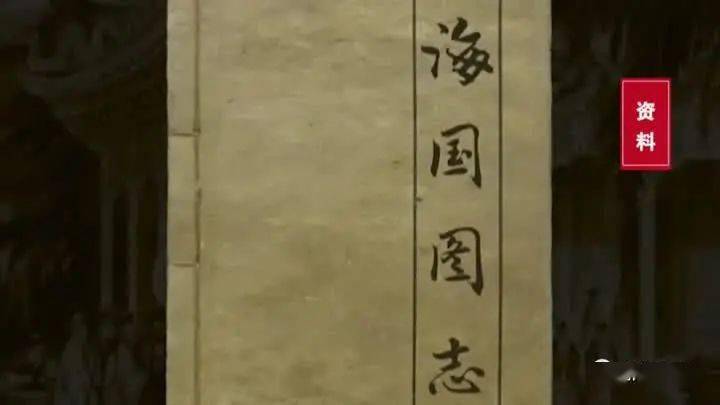 海国图志
资料